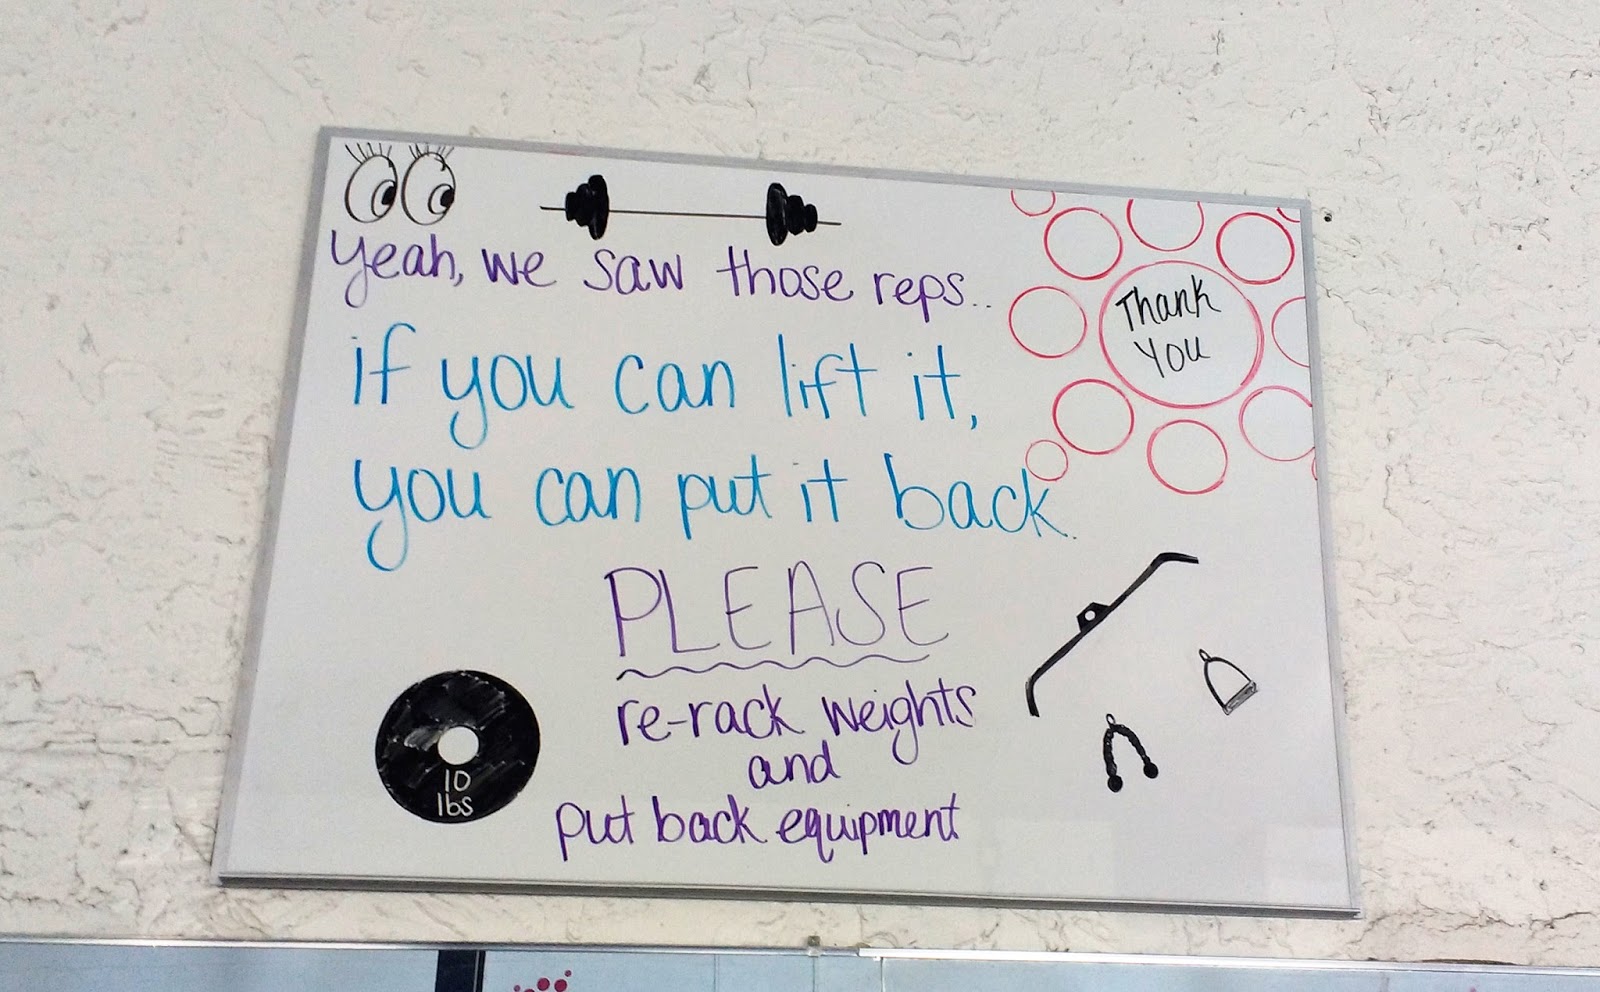 Yeah, we saw those reps..
if you can lift it,
you can put it back.
PLEASE
re-rack weights
and
put back equipment
Thank
You
10
lbs